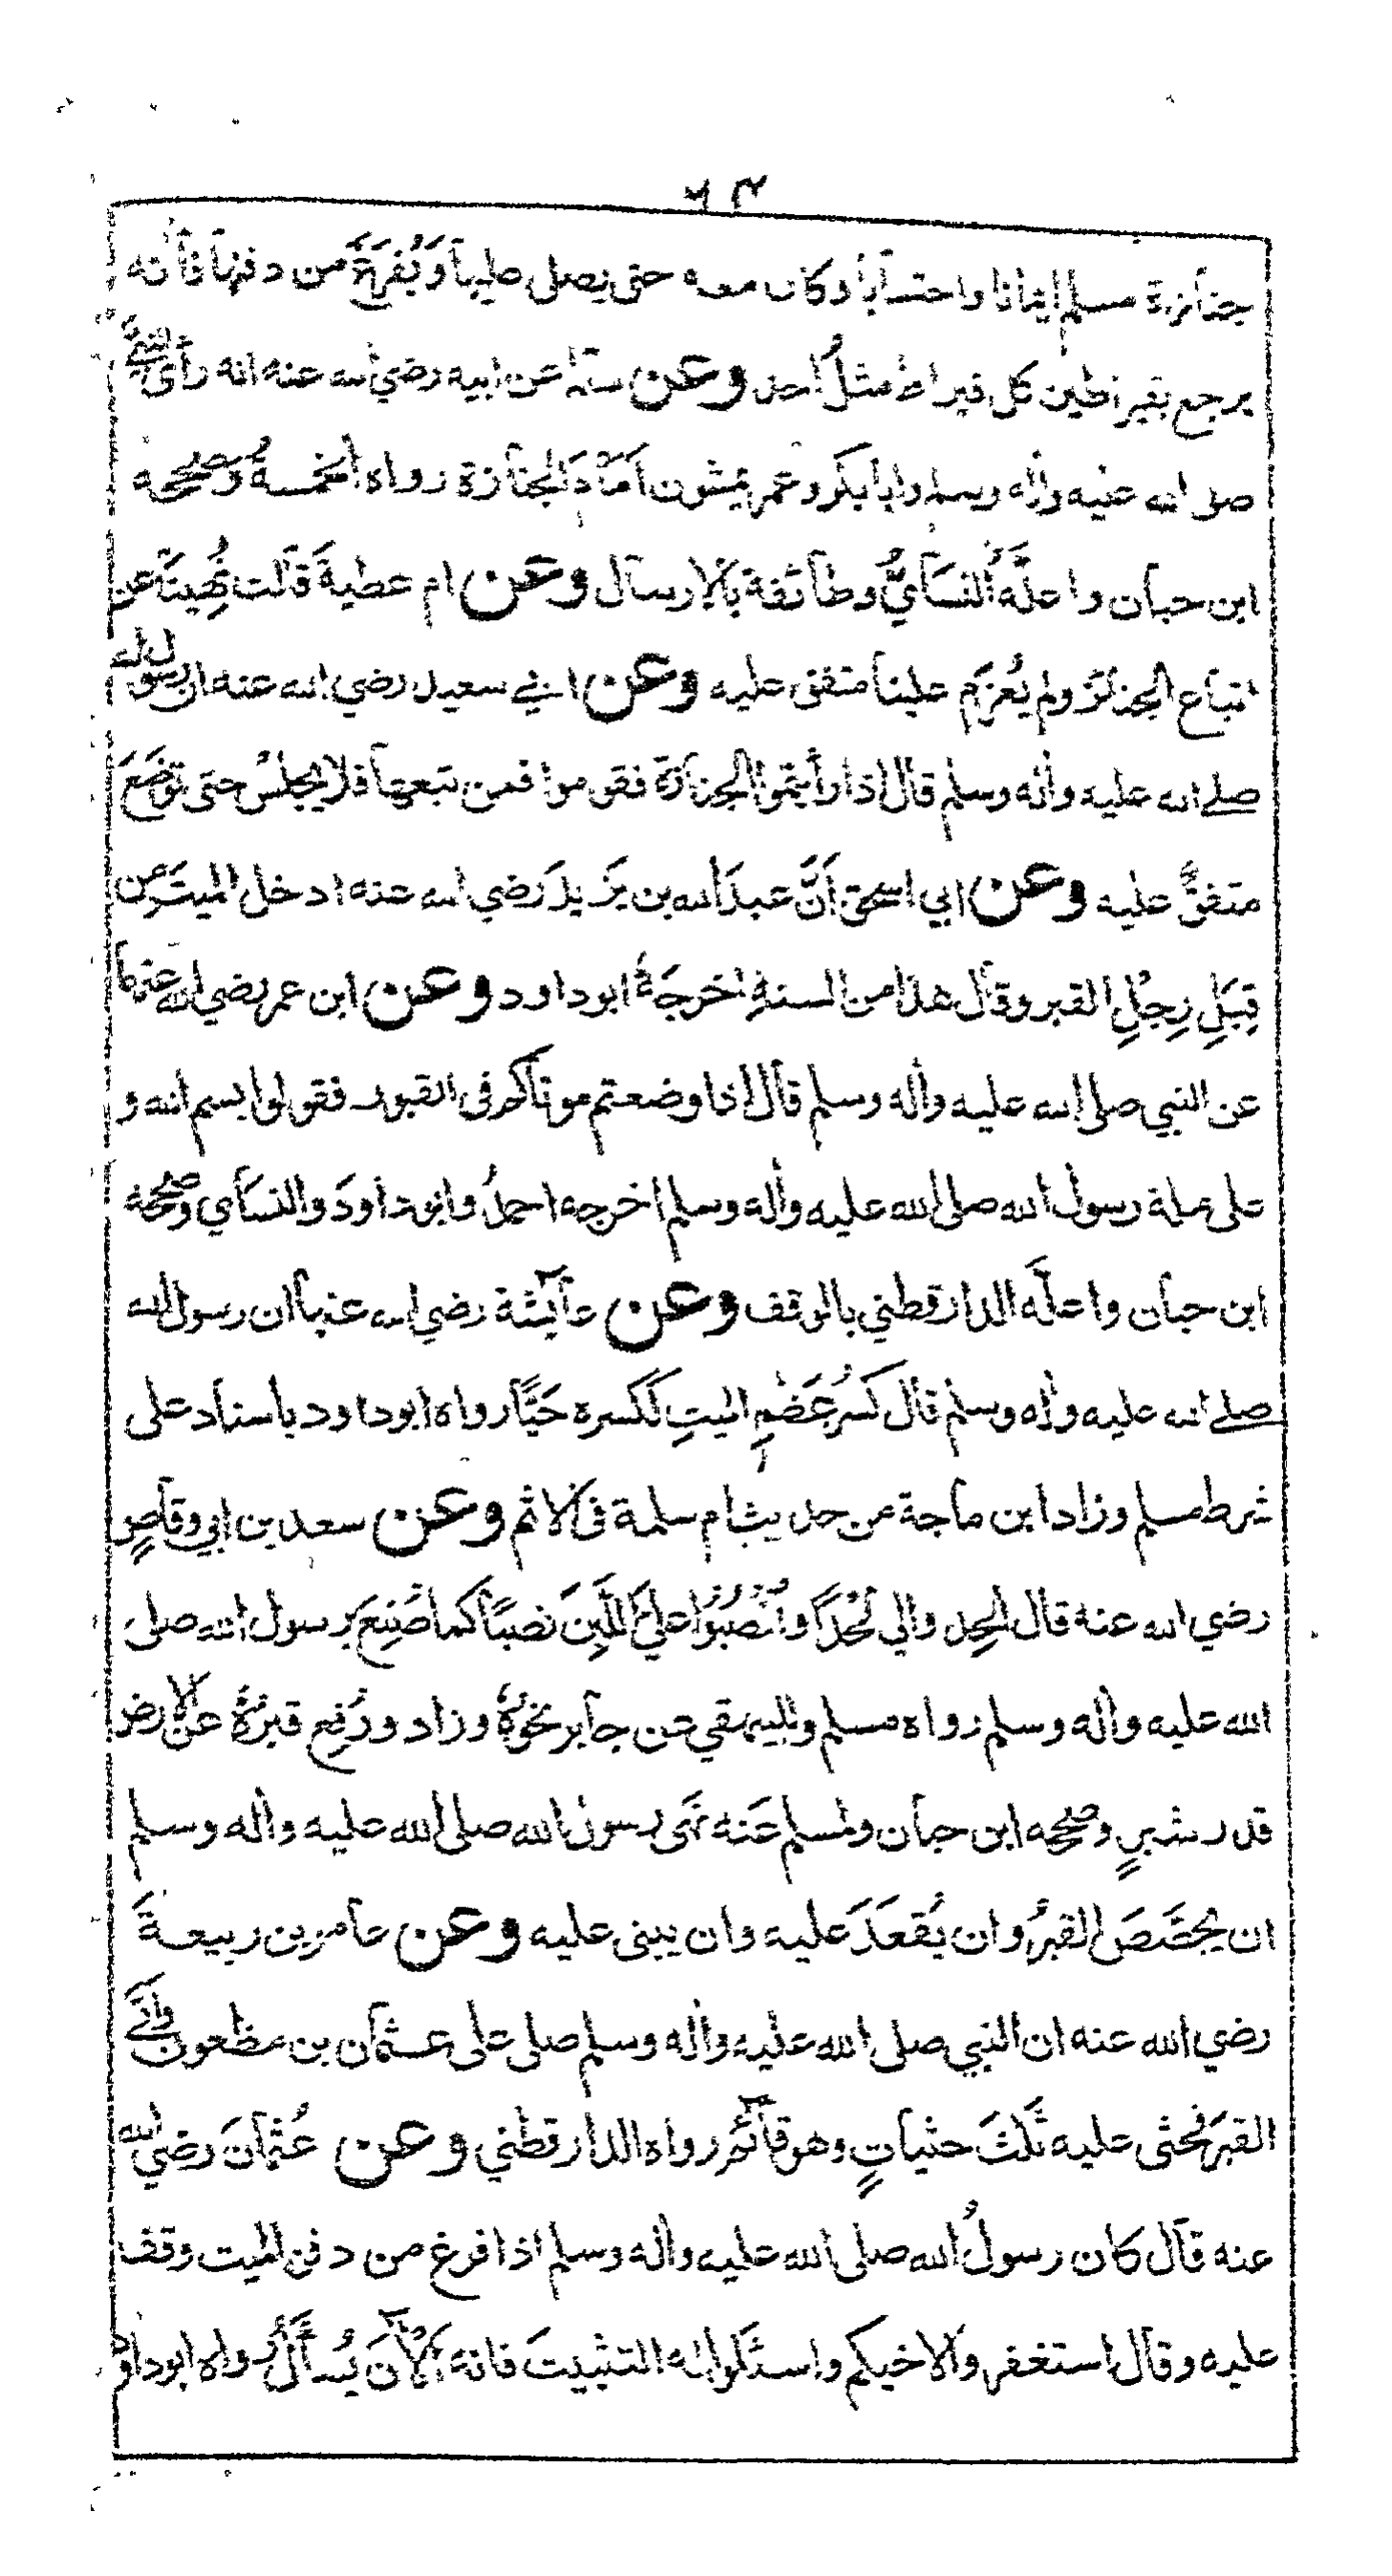 ۶۴
جنازة مسلم ايمانا واحتسابا وكان معه حتى يصلى عليها ويُفرغَ من دفنها فانه
يرجع بقيراطين كل قيراط مثلُ احد وعن سالم عن ابيه رضي الله عنه انه رأى النبيَّ
صلى الله عليه واله وسلم وابا بكر وعمر يمشون امامَ الجنازة رواه الخمسةُ وصححه
ابن حبان واعلَّه النسائيُّ وطائفة بالارسال وعن ام عطية قالت نُهينا عن
اتباع الجنائز ولم يُعزم علينا متفق عليه وعن ابي سعيد رضي الله عنه ان رسول الله
صلے الله عليه واله وسلم قال اذا رأيتموا الجنازة فقوموا فمن تبعها فلا يجلسْ حتى توضَعَ
متفقٌ عليه وعن ابي اسحق اَنَّ عبدَ الله بن يزيدَ رضي الله عنه ادخل الميتَ من
قِبَلِ رِجْلِ القبر وقال هذا من السنةِ اخرجَهُ ابو داود وعن ابن عمر رضي الله عنهما
عن النبي صلى الله عليه واله وسلم قال اذا وضعتم موتاكم فى القبور فقولوا بسم الله و
على ملة رسول الله صلى الله عليه واله وسلم اخرجه احمدُ وابو داودَ والنسائي وصححه
ابن حبان واعلَّه الدارقطني بالوقف وعن عائشة رضي الله عنها ان رسول الله
صلے الله عليه واله وسلم قال كَسْرُ عَظْمِ الميتِ ككسره حيًّا رواه ابو داود باسناد على
شرط مسلم وزاد ابن ماجة من حديث ام سلمة فى الاثم وعن سعد بن ابي وقاصٍ
رضي الله عنه قال الحِدوا لي لَحْدًا وانْصُبُوا عليَّ اللَّبِنَ نصبًا كما صُنِعَ برسول الله صلى
الله عليه واله وسلم رواه مسلم وللبيهقي عن جابر نحوُهُ وزاد ورُفِع قبرُهُ عن الارض
قدر شبرٍ وصححه ابن حبان ولمسلم عَنه نهى رسول الله صلى الله عليه واله وسلم
ان يجصَّصَ القبرُ وان يُقعَدَ عليه وان يبنى عليه وعن عامر بن ربيعةَ
رضي الله عنه ان النبي صلى الله عليه واله وسلم صلى على عثمان بن مظعون واتَى
القبرَ فحثى عليه ثلٰثَ حثياتٍ وهو قائم رواه الدارقطني وعن عُثمانَ رضي الله
عنه قال كان رسولُ الله صلى الله عليه واله وسلم اذا فرغ من دفن الميت وقف
عليه وقال استغفروا لاخيكم واسئلوا له التثبيتَ فانه الاٰنَ يُسأَلُ رواه ابو داود